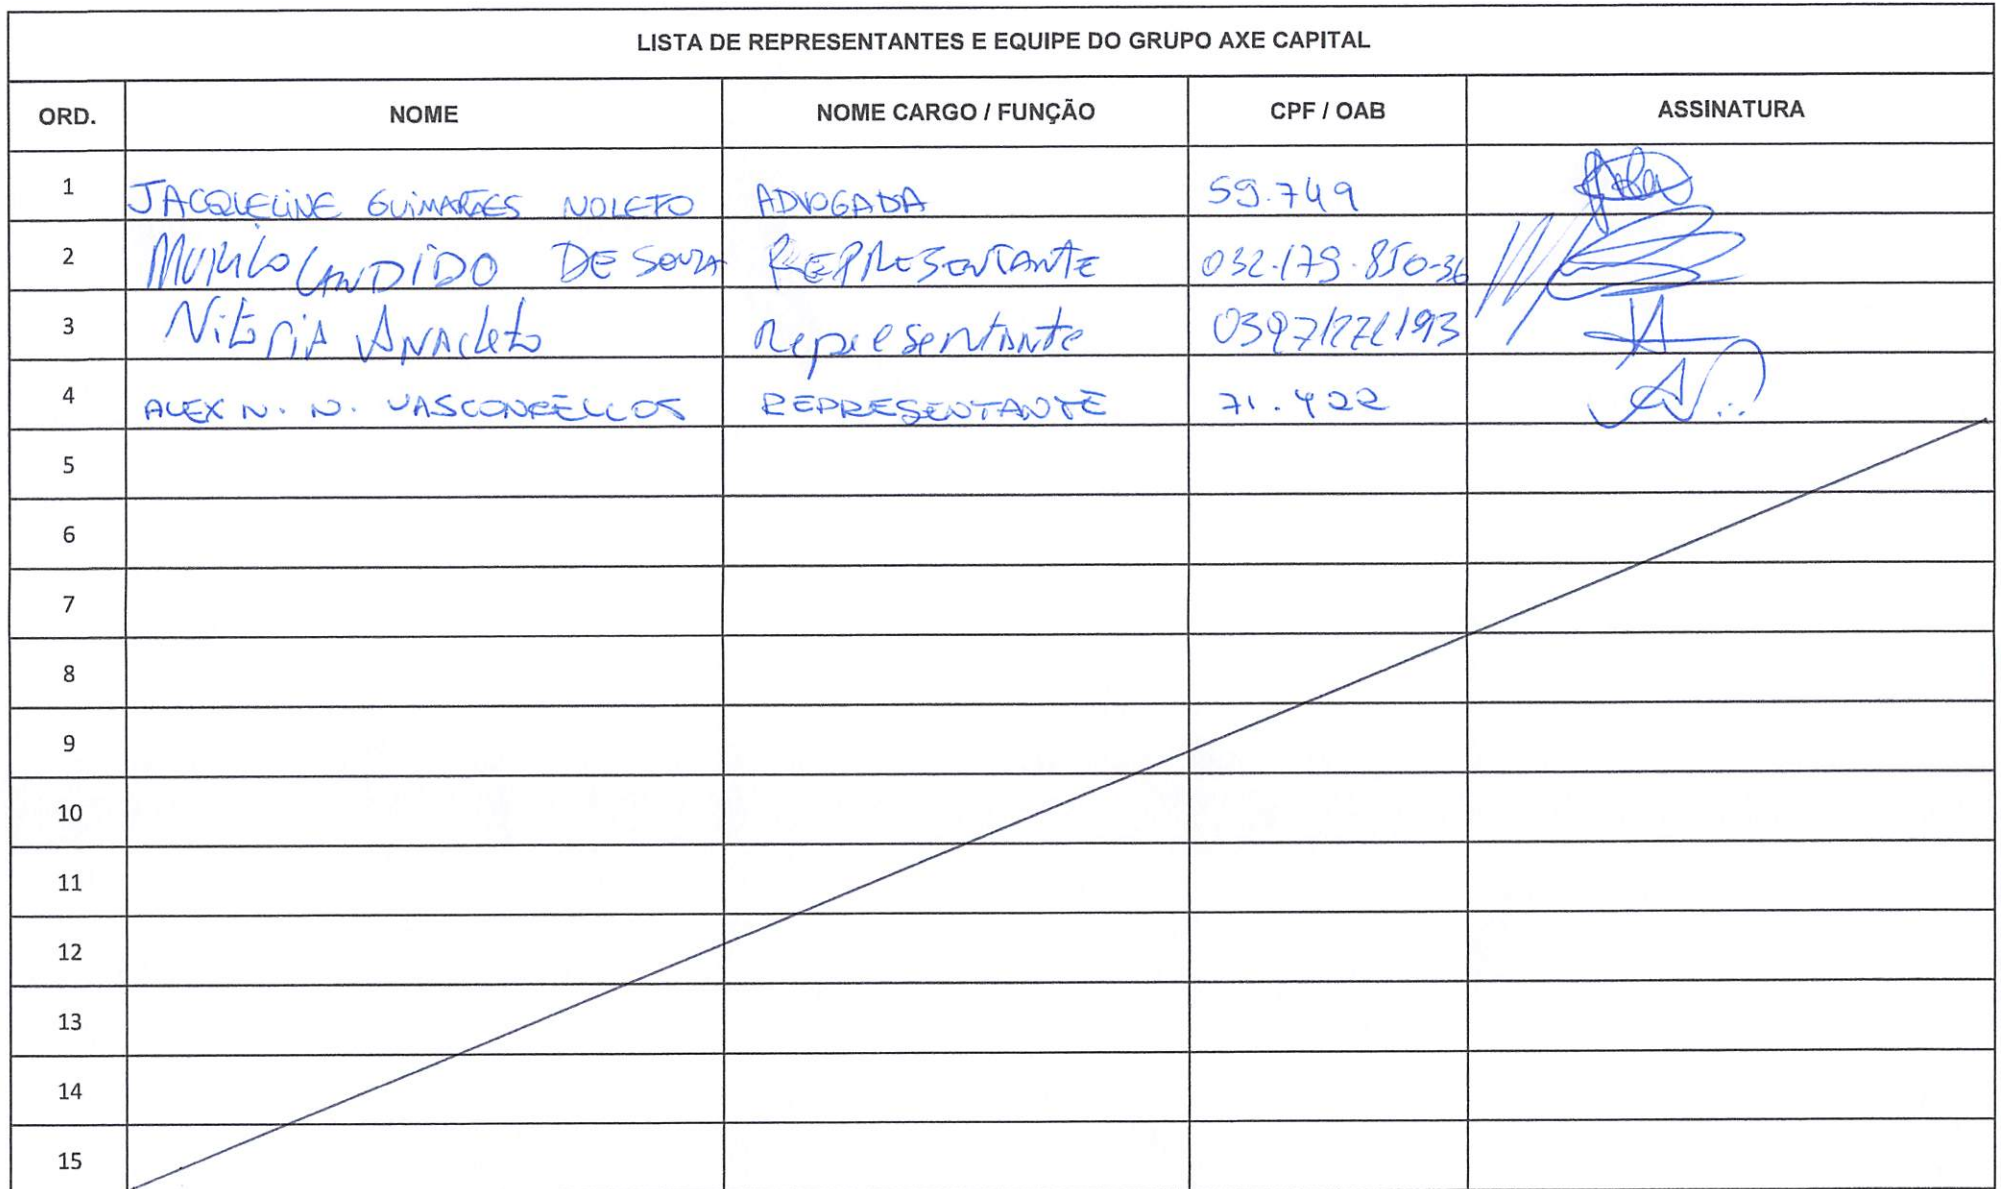 LISTA DE REPRESENTANTES E EQUIPE DO GRUPO AXE CAPITAL
ORD. NOME NOME CARGO / FUNÇÃO CPF / OAB ASSINATURA
1 JACQUELINE GUIMARÃES NOLETO ADVOGADA 59.749
2 MURILO CANDIDO DE SOUZA REPRESENTANTE 032.179.850-36
3 Vitoria Anacleto Representante
4 ALEX N. N. VASCONCELLOS REPRESENTANTE 71.422
5
6
7
8
9
10
11
12
13
14
15